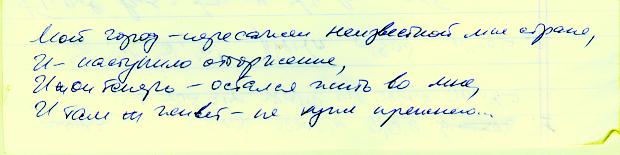 Мой город – пересажен неизвестной мне стране,
И – наступило отторжение,
И он теперь – остался жить во мне,
И там и живёт – не хуже прежнего...